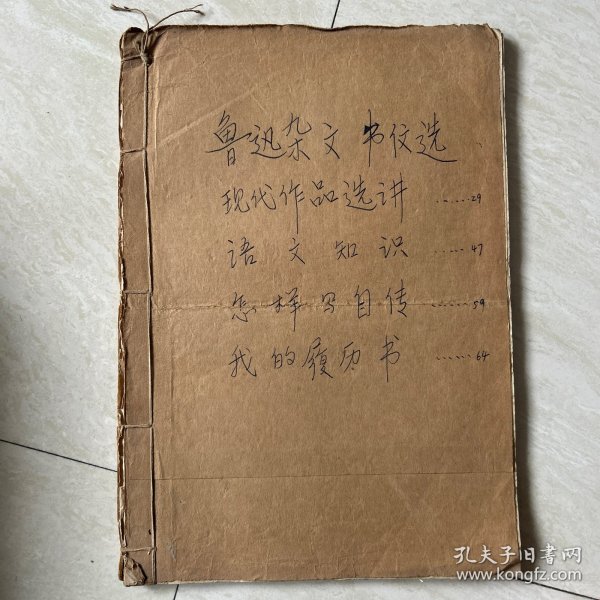 鲁迅杂文书信选
现代作品选讲 ……29
语文知识 ……47
怎样写自传 ……59
我的履历书 ……64
孔夫子旧书网
www.kongfz.com